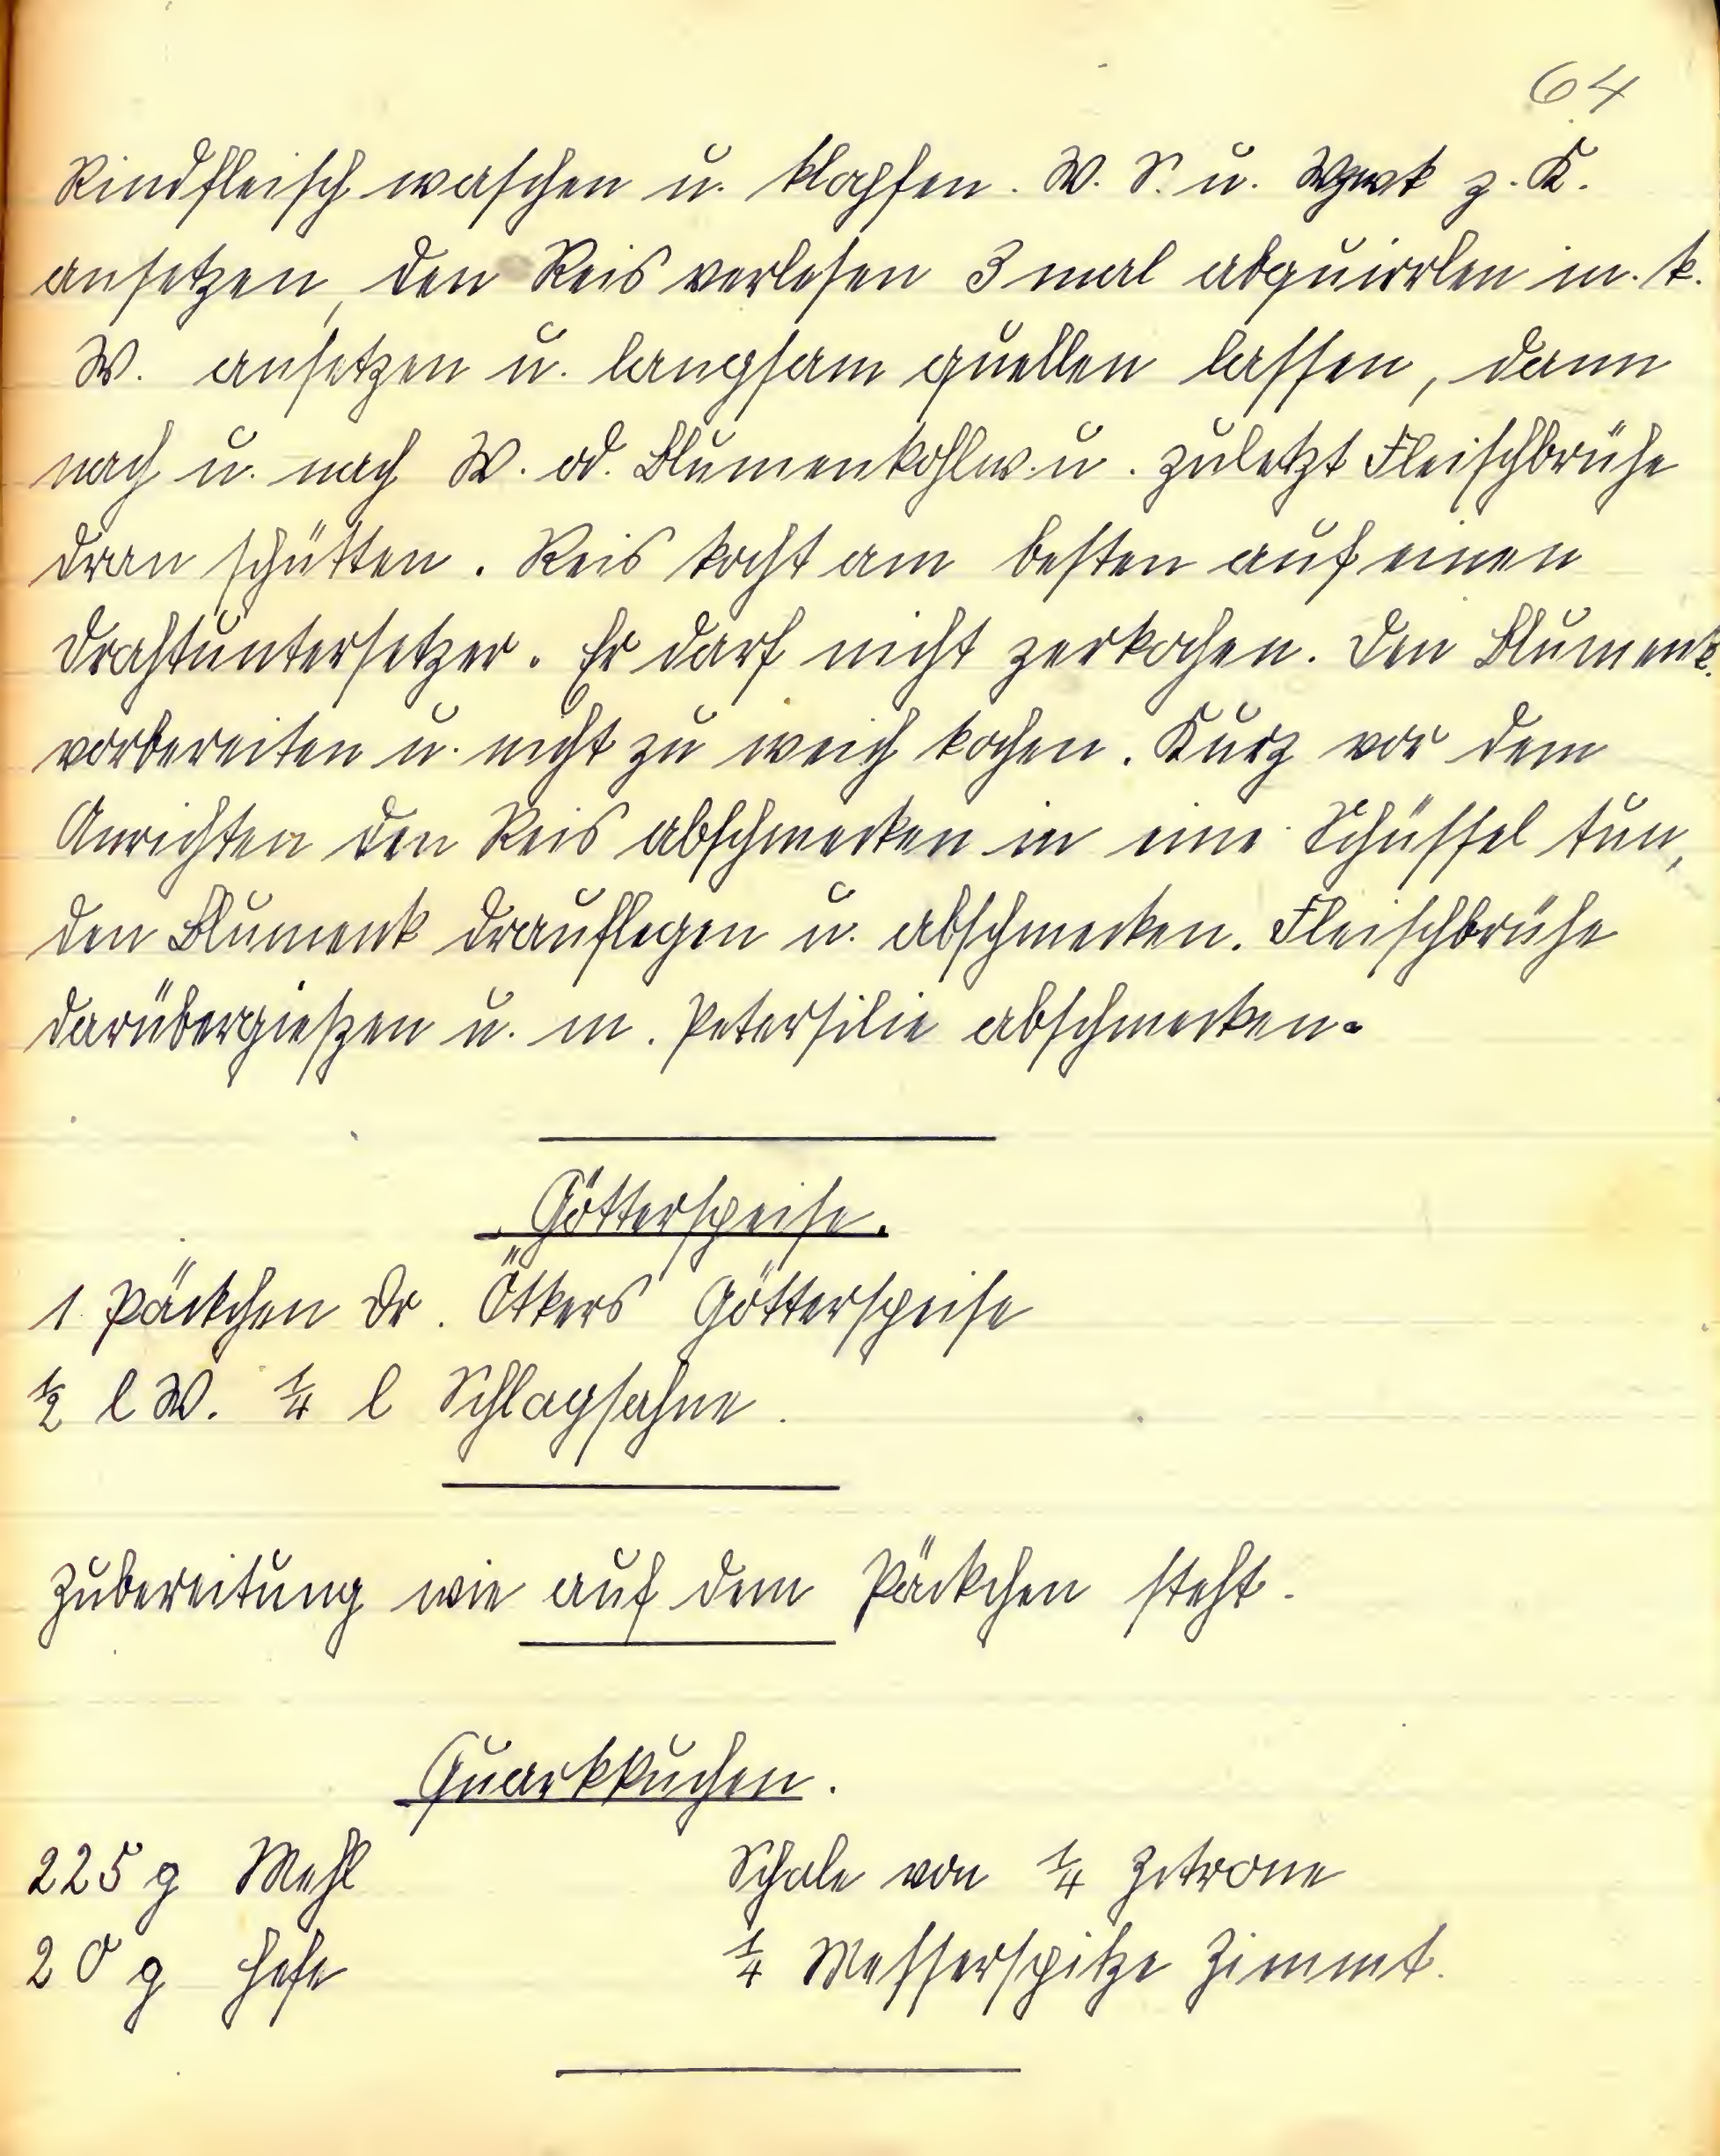 64
Rindfleisch waschen u. klopfen. W. S. u. Wgwk z. K.
ansetzen, den Reis verlesen 3 mal abquirrlen m. k.
W. ansetzen u. langsam quellen lassen, dann
nach u. nach W. od. Blumenkohlw. u. zuletzt Fleischbrühe
dran schütten. Reis kocht am besten auf einen
Drahtuntersetzer. Er darf nicht zerkochen. Den Blumenk.
vorbereiten u. nicht zu weich kochen. Kurz vor dem
Anrichten den Reis abschmecken in eine Schüssel tun,
den Blumenk drauflegen u. abschmecken. Fleischbrühe
darübergießen u. m. Petersilie abschmecken.
Götterspeise.
1 Päckchen Dr. Ötkers Götterspeise
½ l W. ¼ l Schlagsahne.
Zubereitung wie auf dem Päckchen steht.
Quarkkuchen.
225 g Mehl Schale von ¼ Zitrone
20 g Hefe ¼ Messerspitze Zimmt.